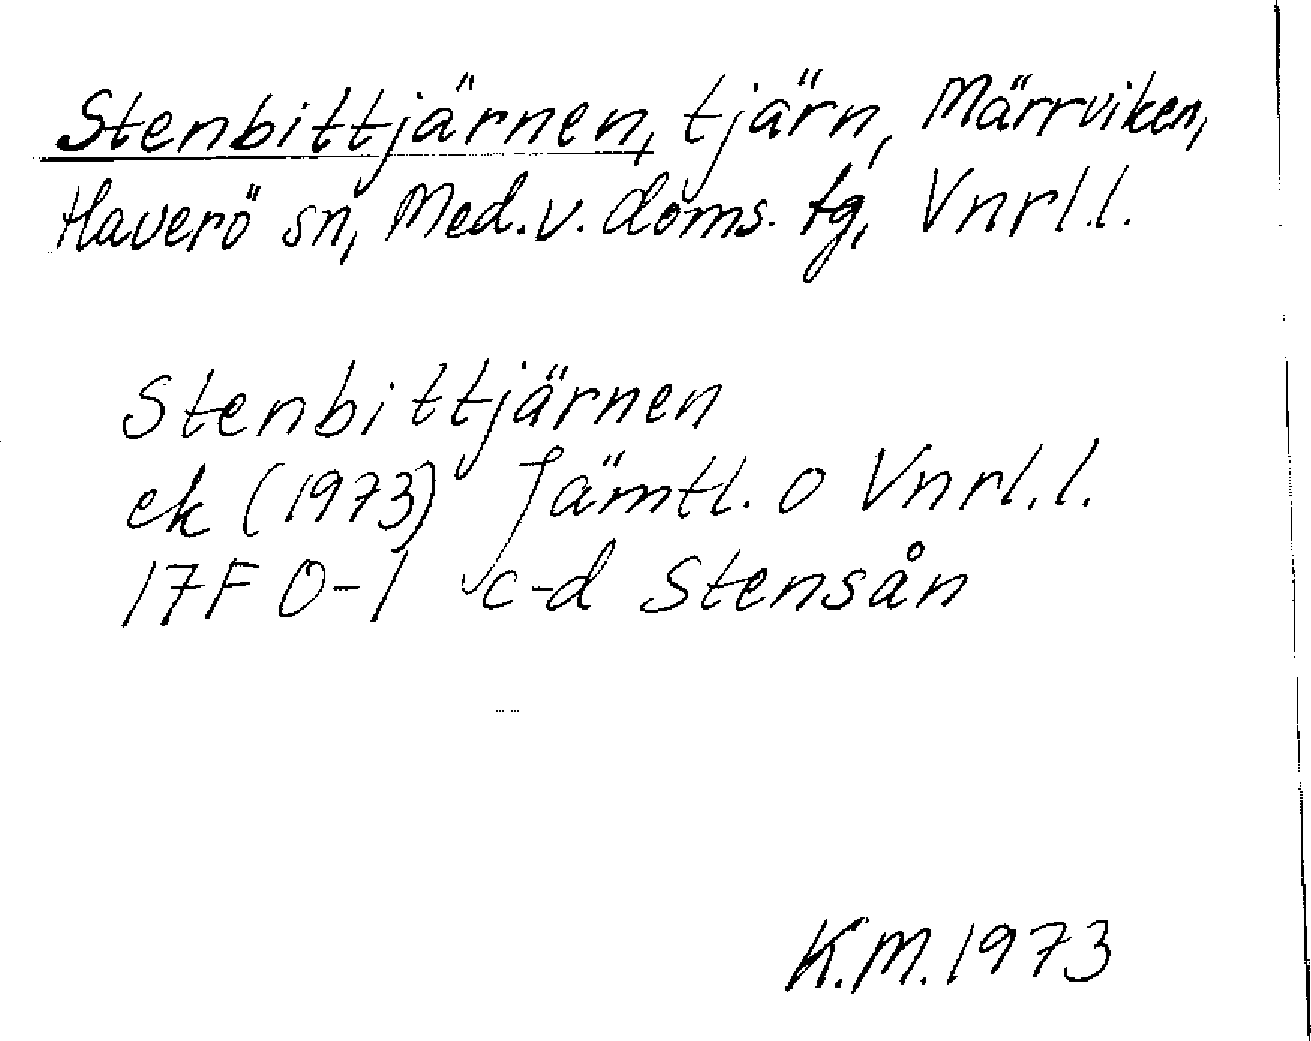 Stenbittjärnen, tjärn, Märrviken,
Haverö sn, Med.v. doms. tg, Vnrl.l.
Stenbittjärnen
ek (1973) Jämtl. o Vnrl.l.
17F 0-1 c-d Stensån
K.M. 1973